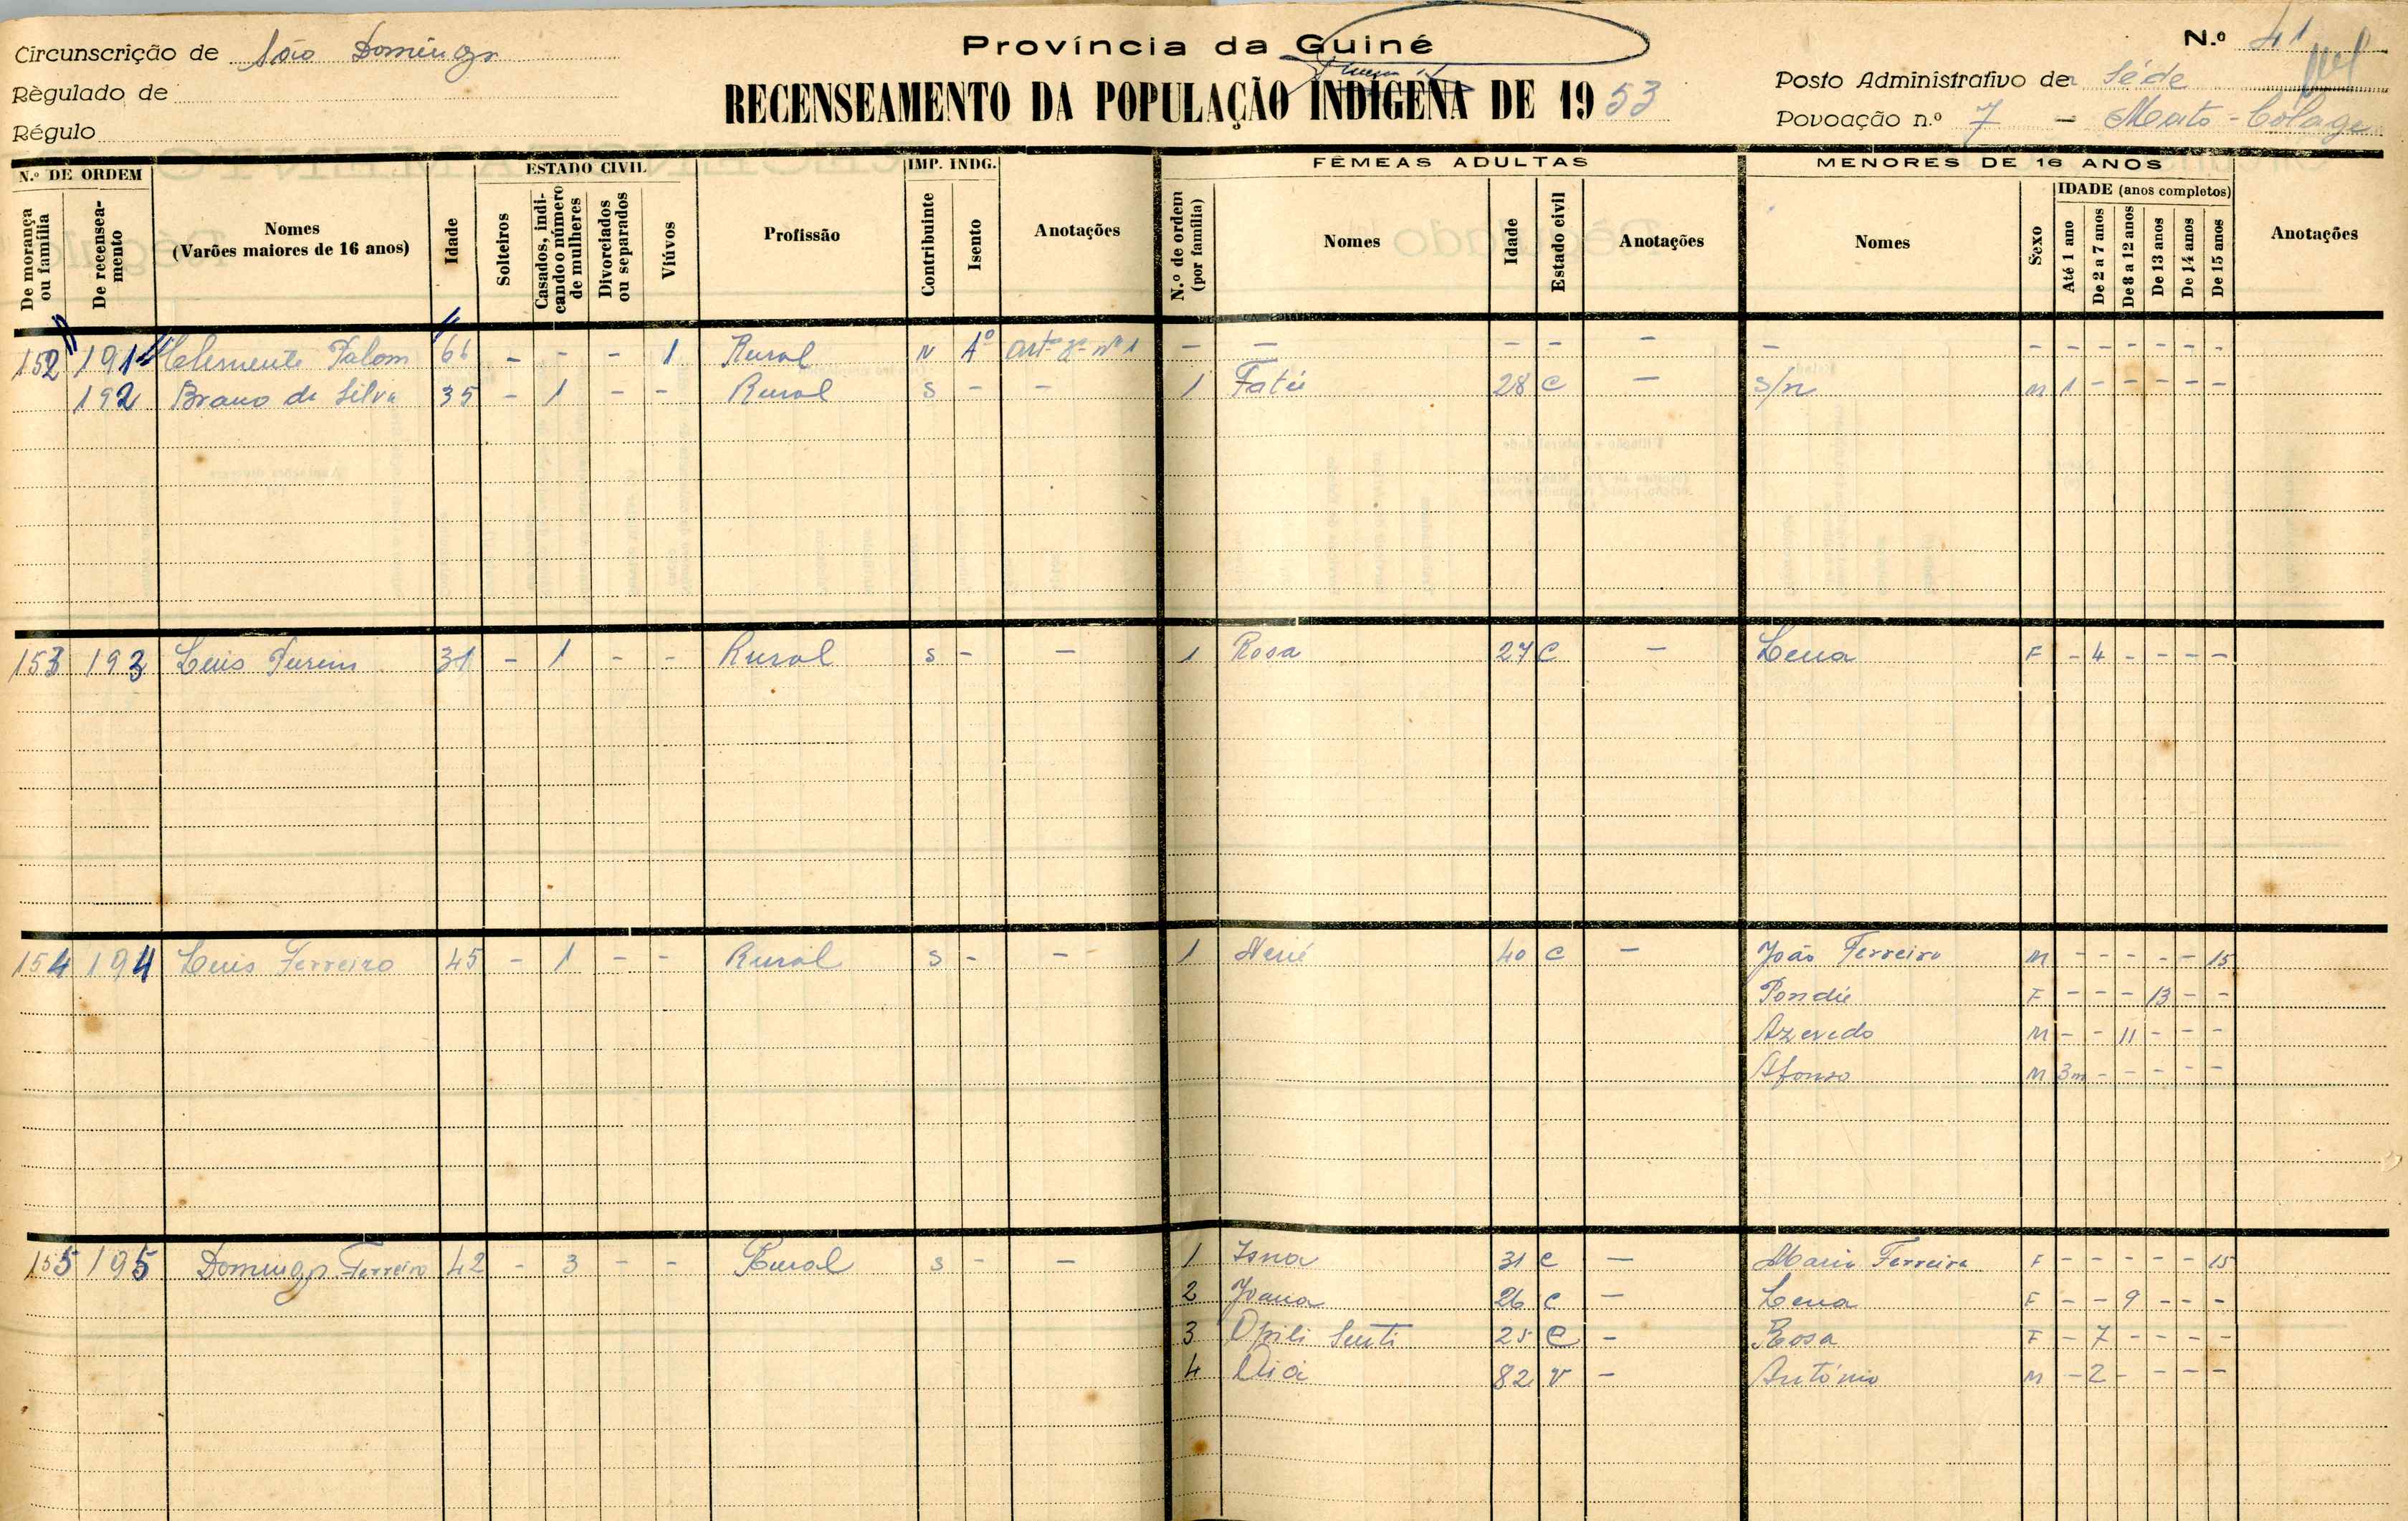 Circunscrição de São Domingos
Règulado de
Régulo
Província da Guiné
RECENSEAMENTO DA POPULAÇÃO INDÍGENA DE 1953
N.º 41
Posto Administrativo de Séde
Povoação n.º 7 - Mato-Colage
N.º DE ORDEM
De morança ou família
De recensea-mento
Nomes
(Varões maiores de 16 anos)
Idade
ESTADO CIVIL
Solteiros
Casados, indi-cando o número de mulheres
Divorciados ou separados
Viúvos
Profissão
IMP. INDG.
Contribuinte
Isento
Anotações
FÊMEAS ADULTAS
N.º de ordem (por família)
Nomes
Idade
Estado civil
Anotações
MENORES DE 16 ANOS
Nomes
Sexo
IDADE (anos completos)
Até 1 ano
De 2 a 7 anos
De 8 a 12 anos
De 13 anos
De 14 anos
De 15 anos
Anotações
152 191 Clemente 66 - - - 1 Rural N Aº artº 8º nº 1 - - - - - - - - - - - - -
192 Brano da Silva 35 - 1 - - Rural S - - 1 Fatú 28 C - s/n M 1 - - - - -
153 193 Luis 31 - 1 - - Rural S - - 1 Rosa 27 C - Lena F - 4 - - - -
154 194 Luis Ferreiro 45 - 1 - - Rural S - - 1 Nené 40 C - João Ferreiro M - - - - - 15
Pondié F - - - 13 - -
Azevedo M - - 11 - - -
Afonso M 3m - - - - -
155 195 Domingos Ferreiro 42 - 3 - - Rural S - - 1 Isna 31 C - Maria Ferreira F - - - - - 15
2 Joana 26 C - Lena F - - 9 - - -
3 Opili 25 C - Rosa F - 7 - - - -
4 82 V - António M - 2 - - - -